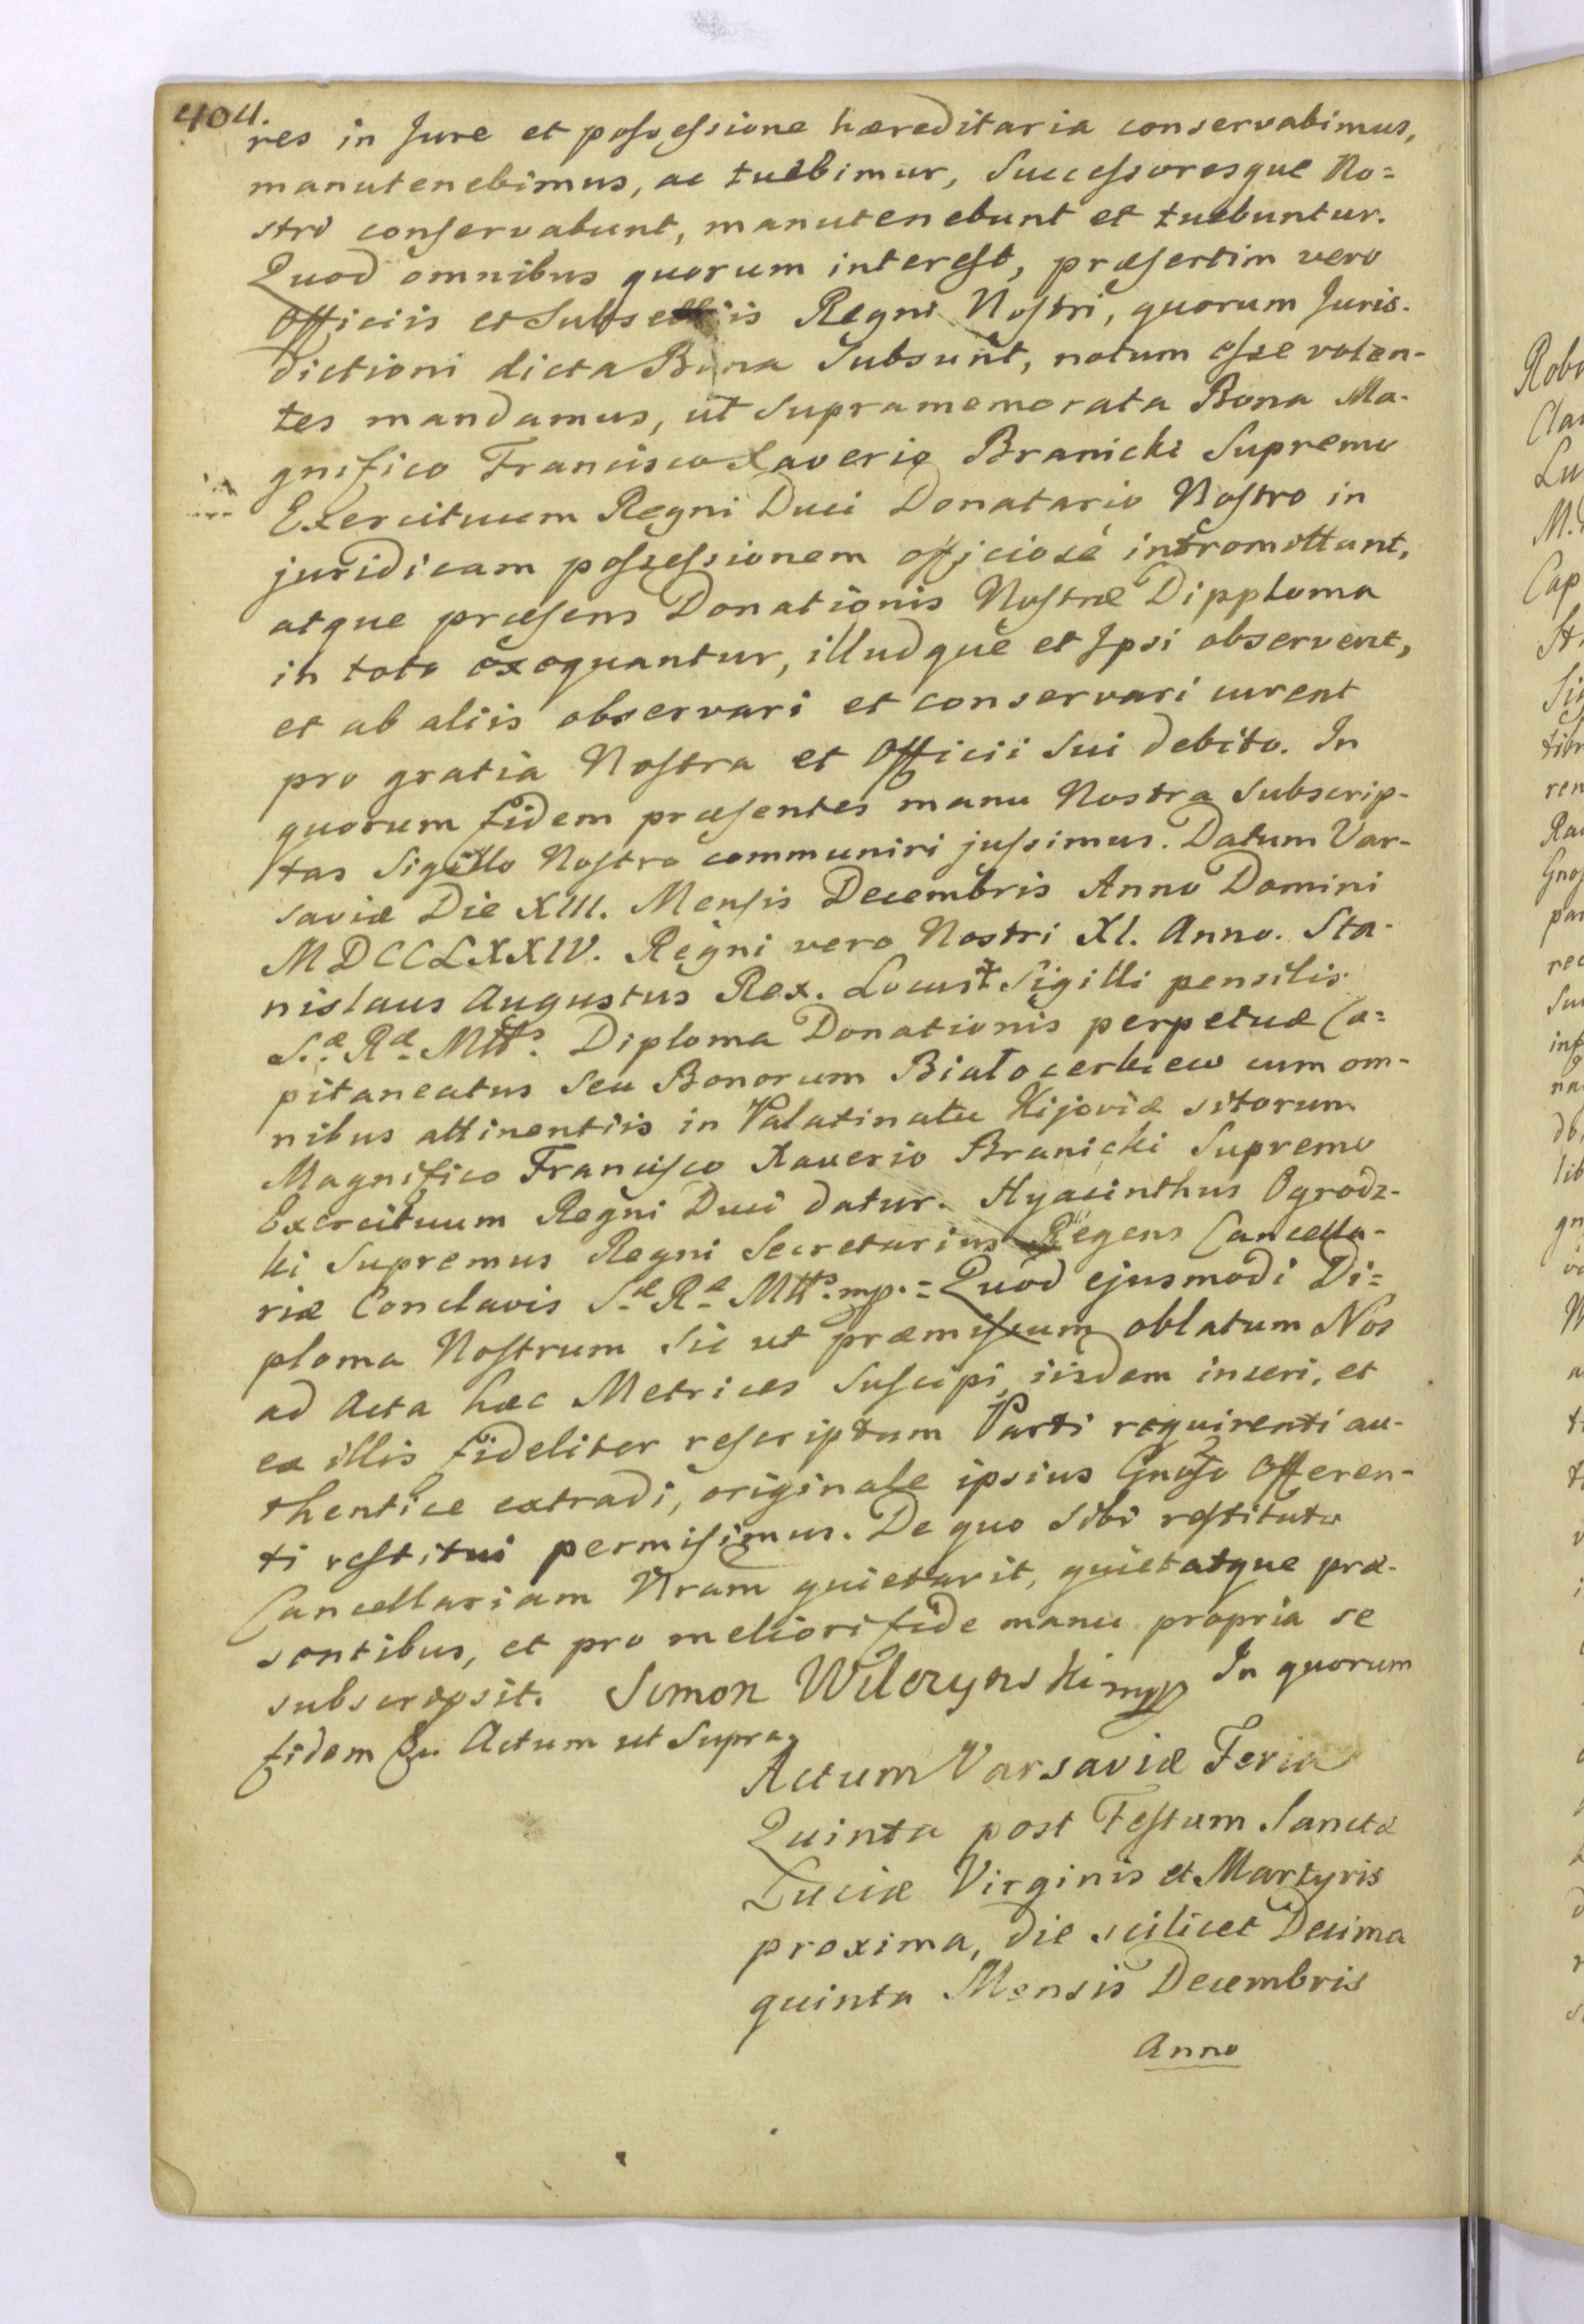 404.
res in Jure et possessione hæreditaria conservabimus,
manutenebimus, ac tuebimur, Successoresque No=
stri conservabunt, manutenebunt et tuebuntur.
Quod omnibus quorum interest, præsertim vero
Officiis et Subselliis Regni Nostri, quorum Juris-
dictioni dicta Bona Subsunt, notum esse volen-
tes mandamus, ut Supramemorata Bona Ma-
gnifico Francisco Xaverio Branicki Supremo
Exercituum Regni Duci Donatario Nostro in
juridicam possessionem officiosé intromittant,
atque præsens Donationis Nostræ Dipploma
in toto exequantur, illudque et Ipsi observent,
et ab aliis observari et conservari curent
pro gratia Nostra et Officii Sui debito. In
quorum fidem præsentes manu Nostra Subscrip-
tas Sigillo Nostro communiri jussimus. Datum Var-
saviæ Die XIII. Mensis Decembris Anno Domini
MDCCLXXIV. Regni vero Nostri XI. Anno. Sta-
nislaus Augustus Rex. Locus Sigilli pensilis.
S.æ Ræ Mtts. Diploma Donationis perpetuæ Ca=
pitaneatus Seu Bonorum Białocerkiew cum om-
nibus attinentiis in Palatinatu Kijoviæ sitorum
Magnifico Francisco Xaverio Branicki Supremo
Exercituum Regni Duci datur. Hyacinthus Ogrodz-
ki Supremus Regni Secretarius Regens Cancella-
riæ Conclavis S.æ Ræ Mtts. mp. = Quod ejusmodi Di=
ploma Nostrum Sic ut præmissum oblatum Nos
ad Acta hæc Metrices Suscipi, iisdem inseri, et
ex illis fideliter rescriptum Parti requirenti au-
thentice extradi, originale ipsius Gnoso Offeren-
ti restitui permisimus. De quo Sibi restituto
Cancellariam Nram quietavit, quietatque præ-
sentibus, et pro meliori fide manu propria se
subscripsit. Simon Wilczynski mpp In quorum
fidem &c Actum ut Supra.
Actum Varsaviæ Feria
Quinta post Festum Sanctæ
Luciæ Virginis et Martyris
proxima, die scilicet Decima
quinta Mensis Decembris
Anno